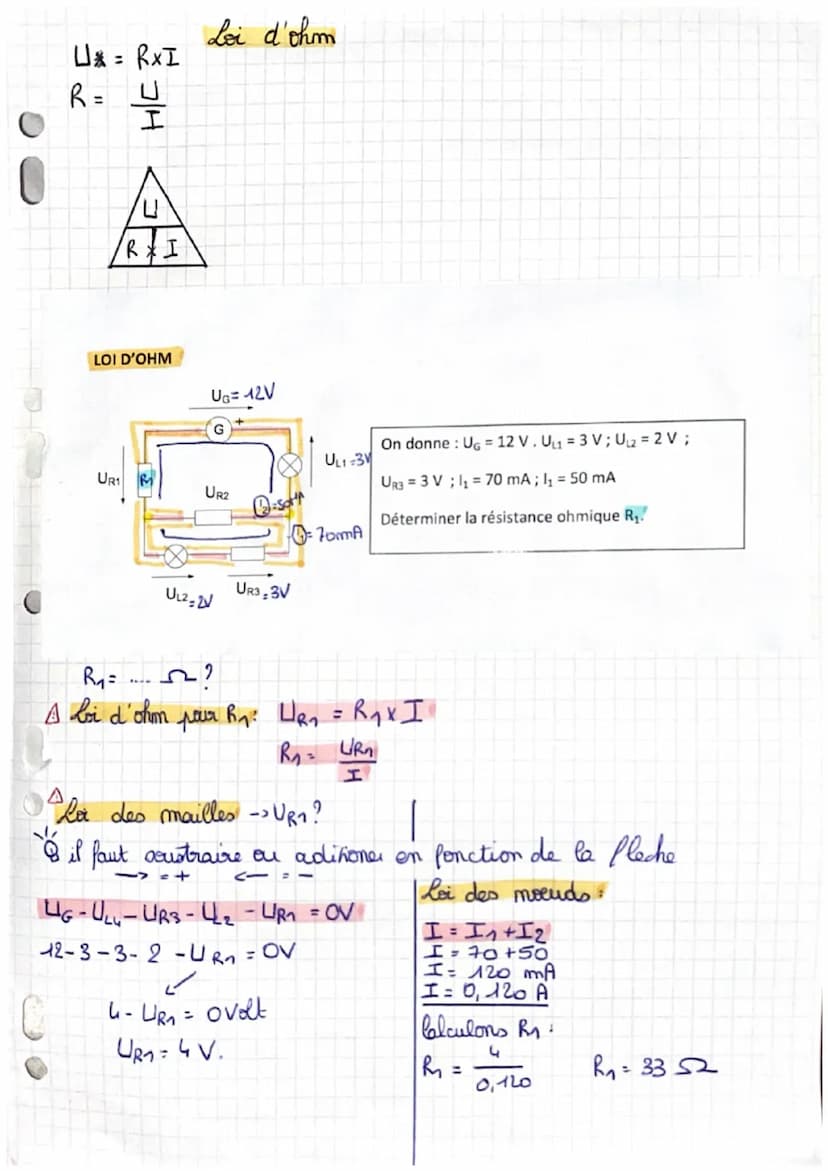 Loi d'ohm
U = R×I
R = U
I
U
R × I
LOI D'OHM
UG= 12V
+
G
UL1=3V
UR1
R1
UR2
I2=50mA
I1= 70mA
UL2=2V
UR3=3V
On donne : UG = 12 V . UL1 = 3 V ; UL2 = 2 V ;
UR3 = 3 V ; I1 = 70 mA ; I1 = 50 mA
Déterminer la résistance ohmique R1.
R1= .... Ω ?
Loi d'ohm pour R1: UR1 = R1×I
R1= UR1
I
Loi des mailles -> UR1?
il faut soustraire ou aditioner en fonction de la fleche
-> = + <- = -
UG-UL1-UR3-UL2-UR1 = 0V
12-3-3-2-UR1 = 0V
4-UR1 = 0 volt
UR1= 4 V.
Loi des noeuds :
I = I1+I2
I = 70+50
I = 120 mA
I = 0,120 A
Calculons R1 :
R1 = 4
0,120
R1 = 33 Ω